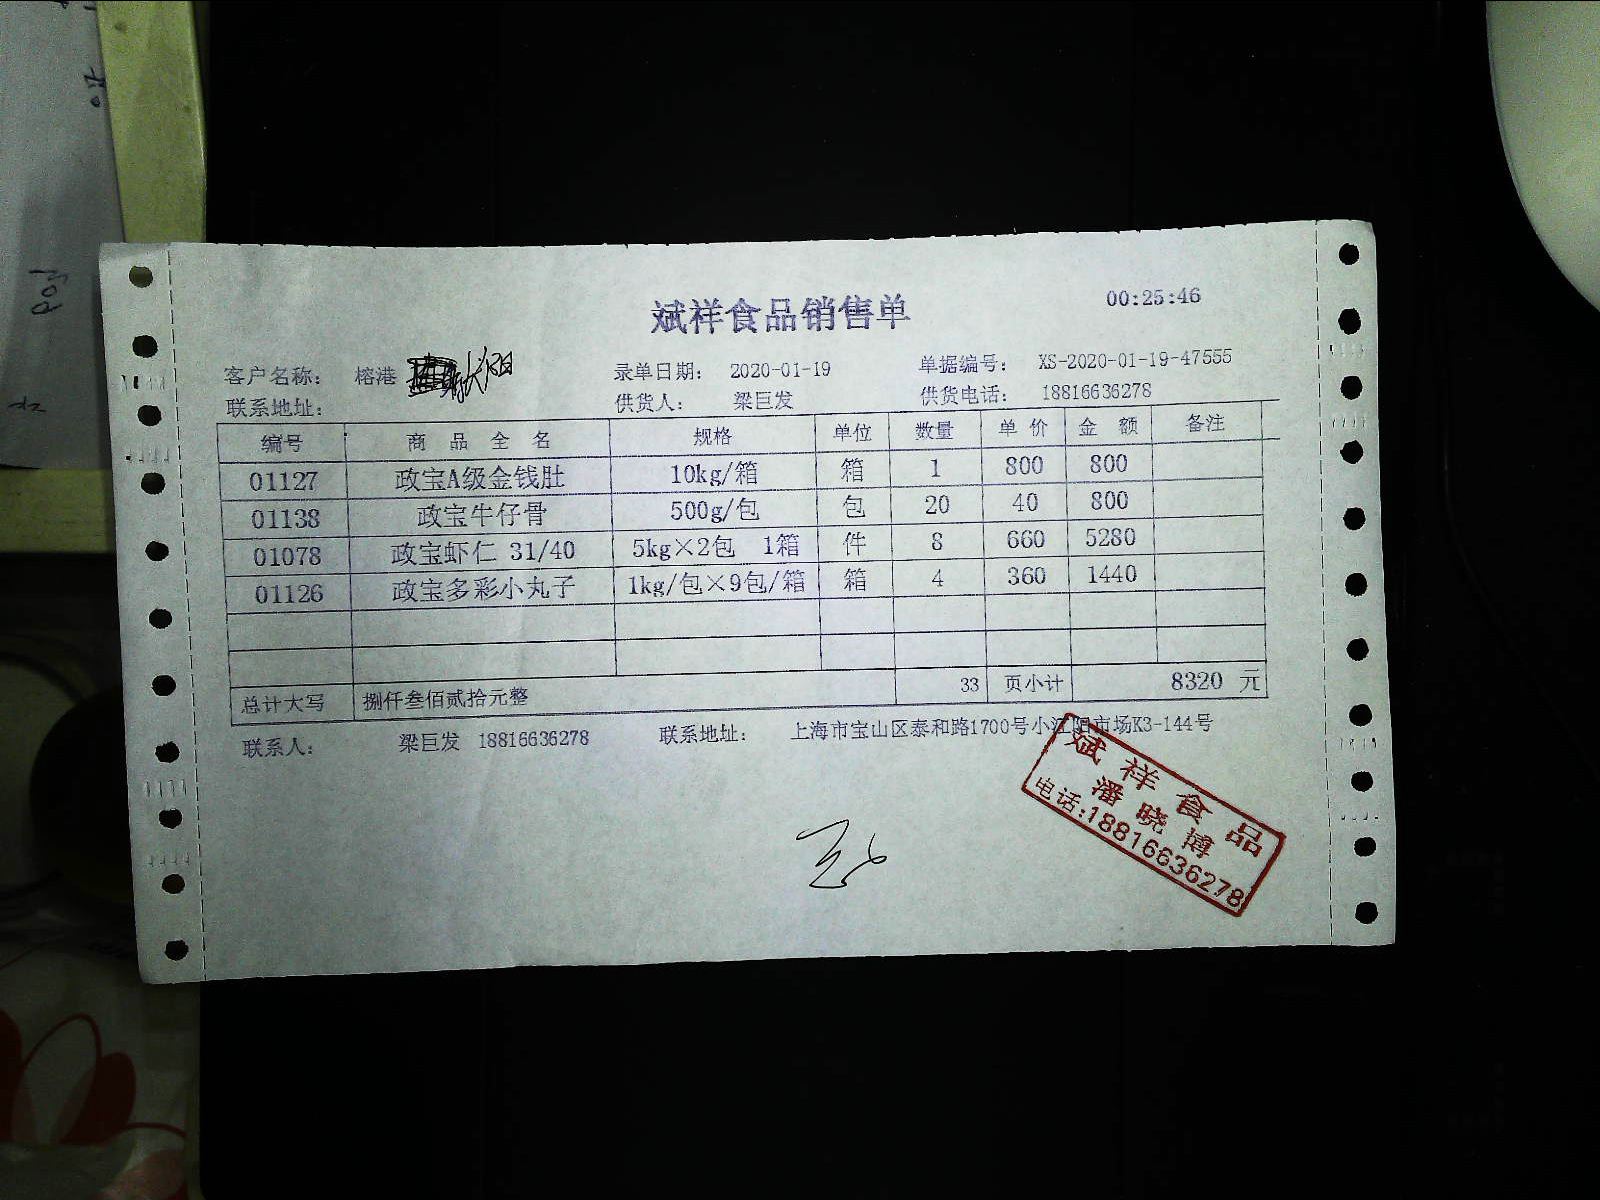 斌祥食品销售单
00:25:46
客户名称： 榕港
录单日期： 2020-01-19
单据编号： XS-2020-01-19-47555
联系地址：
供货人： 梁巨发
供货电话： 18816636278
编号 商品全名 规格 单位 数量 单价 金额 备注
01127 政宝A级金钱肚 10kg/箱 箱 1 800 800
01138 政宝牛仔骨 500g/包 包 20 40 800
01078 政宝虾仁 31/40 5kg×2包 1箱 件 8 660 5280
01126 政宝多彩小丸子 1kg/包×9包/箱 箱 4 360 1440
总计大写 捌仟叁佰贰拾元整 33 页小计 8320 元
联系人： 梁巨发 18816636278 联系地址： 上海市宝山区泰和路1700号小江阳市场K3-144号
斌祥食品
潘晓博
电话:18816636278